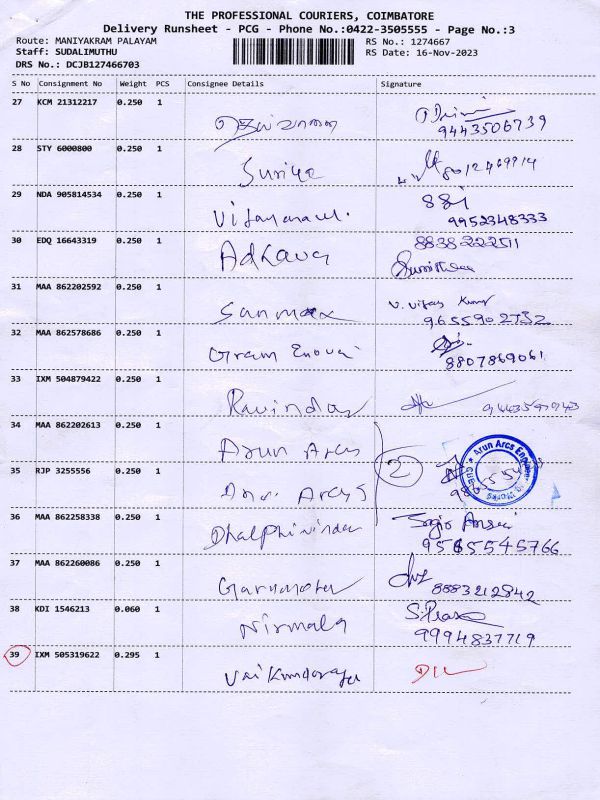 THE PROFESSIONAL COURIERS, COIMBATORE
Delivery Runsheet - PCG - Phone No.:0422-3505555 - Page No.:3
Route: MANIYAKRAM PALAYAM RS No.: 1274667
Staff: SUDALIMUTHU RS Date: 16-Nov-2023
DRS No.: DCJB127466703
S No Consignment No Weight PCS Consignee Details Signature
27 KCM 21312217 0.250 1
9443506739
28 STY 6000800 0.250 1 Suriya
29 NDA 905814534 0.250 1 88i
9952348333
30 EDQ 16643319 0.250 1 Adhava 8838222511
31 MAA 862202592 0.250 1 Sanmax V. Vijay Kumar
9655902732
32 MAA 862578686 0.250 1 Gram
8807869061
33 IXM 504879422 0.250 1 Ravindar
34 MAA 862202613 0.250 1 Arun Arcs 2
35 RJP 3255556 0.250 1 Arcs
Arun Arcs
36 MAA 862258338 0.250 1
9565545766
37 MAA 862260086 0.250 1 8883212842
38 KDI 1546213 0.060 1 Nirmala S.
9994837719
39 IXM 505319622 0.295 1